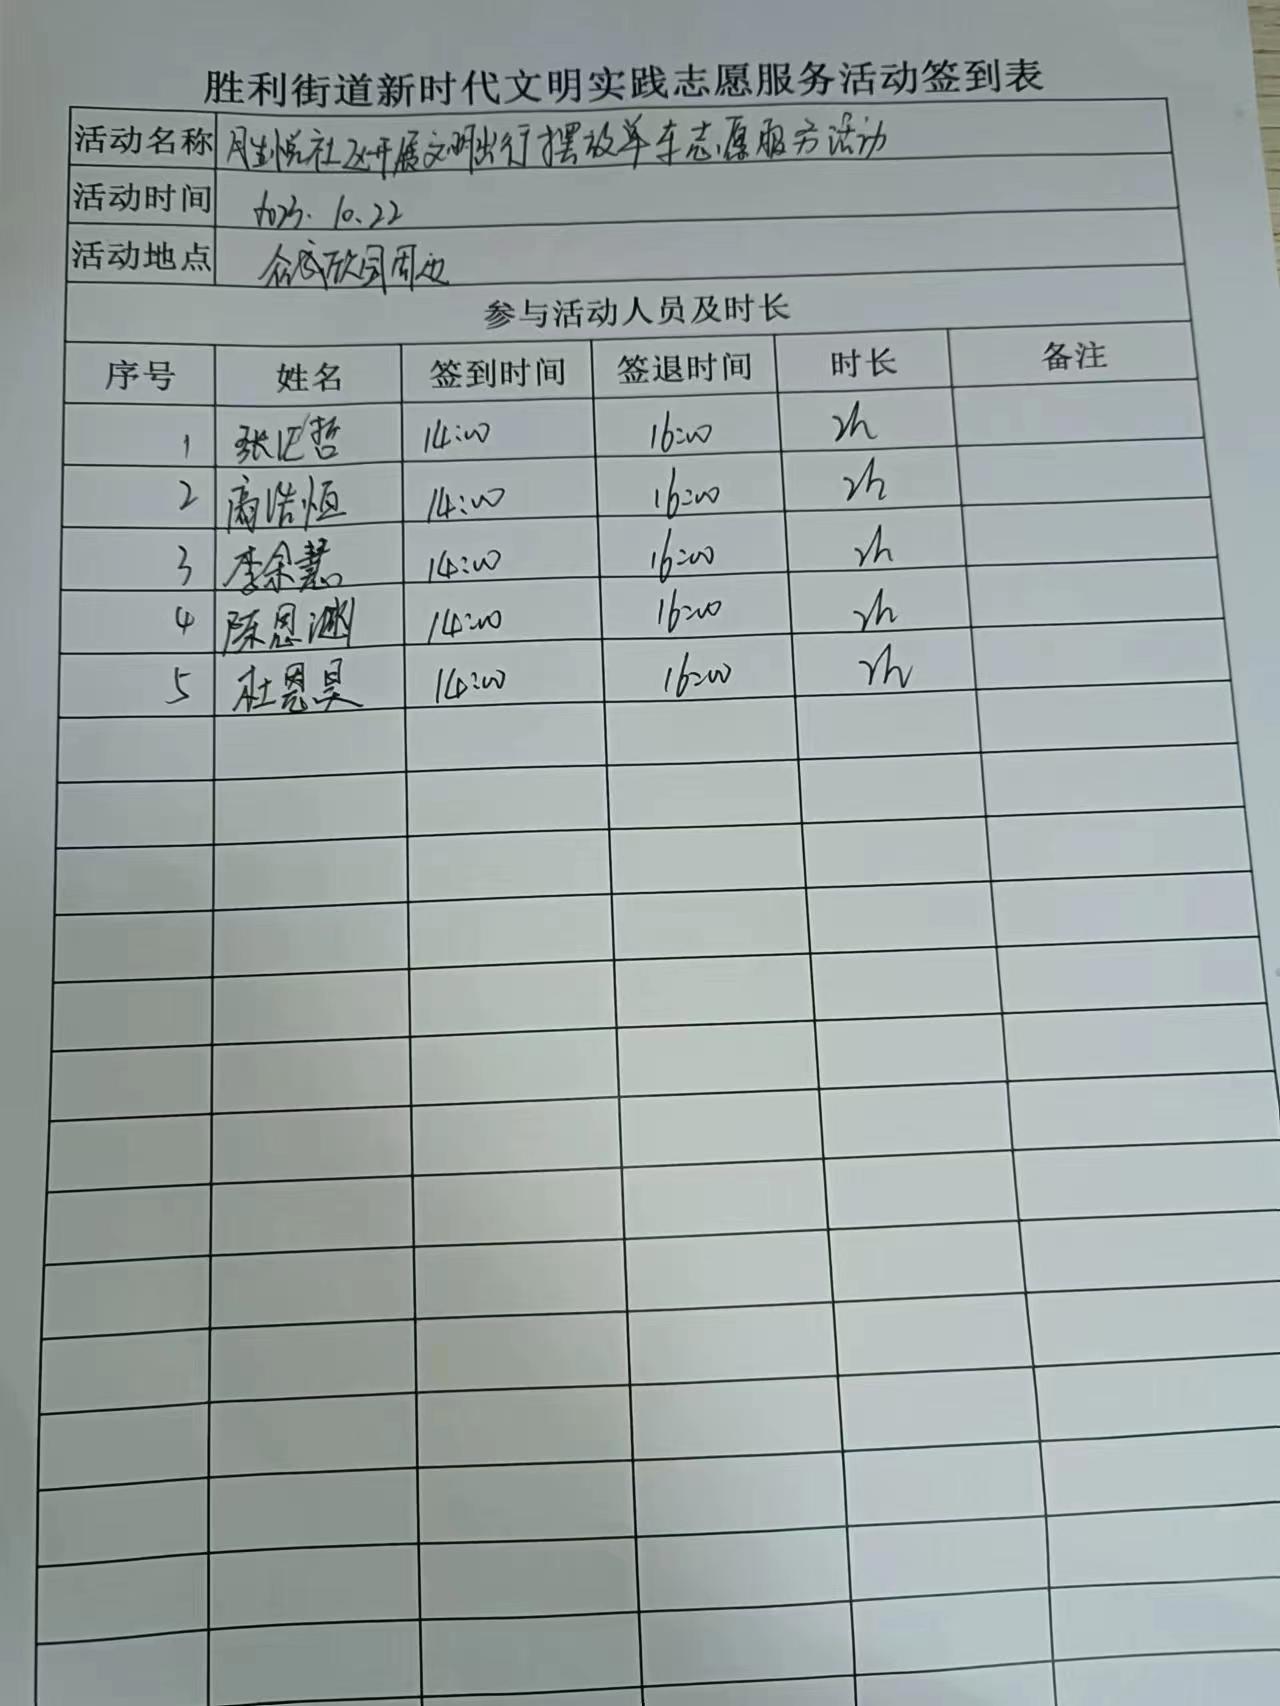 胜利街道新时代文明实践志愿服务活动签到表
活动名称 社区开展文明出行摆放单车志愿服务活动
活动时间 2023.10.22
活动地点 欣园周边
参与活动人员及时长
序号 姓名 签到时间 签退时间 时长 备注
1 张汇哲 14:00 16:00 2h
2 高浩恒 14:00 16:00 2h
3 李余慧 14:00 16:00 2h
4 陈恩渊 14:00 16:00 2h
5 杜恩昊 14:00 16:00 2h